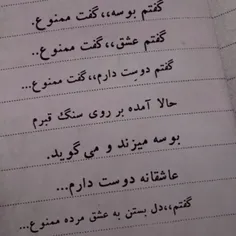 گفتم بوسه،،گفت ممنوع.
گفتم عشق،،گفت ممنوع..
گفتم دوست دارم،،گفت ممنوع...
حالا آمده بر روی سنگ قبرم
بوسه میزند و می گوید.
عاشقانه دوست دارم...
گفتم،،دل بستن به عشق مرده ممنوع...